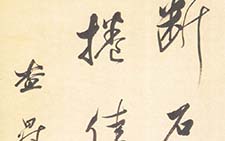 断石
捲佳
查昇